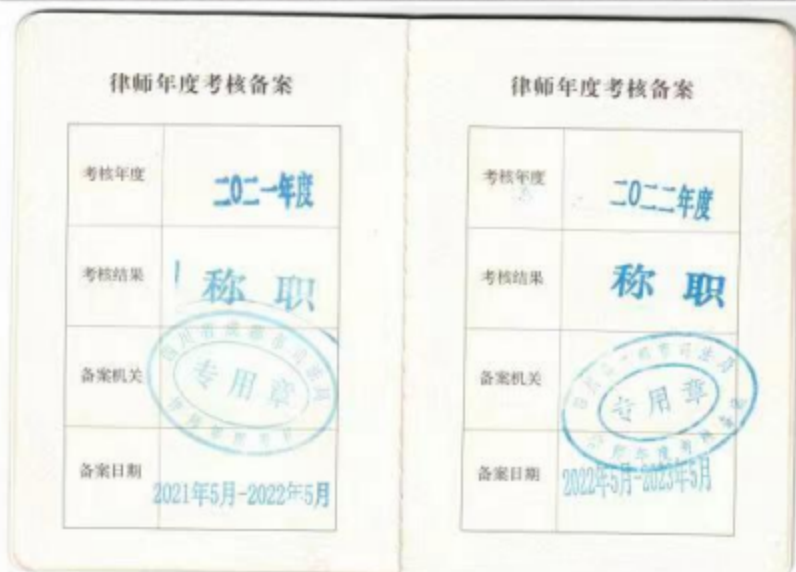 律师年度考核备案
考核年度
二〇二一年度
考核结果
称 职
备案机关
四川省成都市司法局
专用章
备案日期
2021年5月-2022年5月
律师年度考核备案
考核年度
二〇二二年度
考核结果
称 职
备案机关
专用章
备案日期
2022年5月-2023年5月